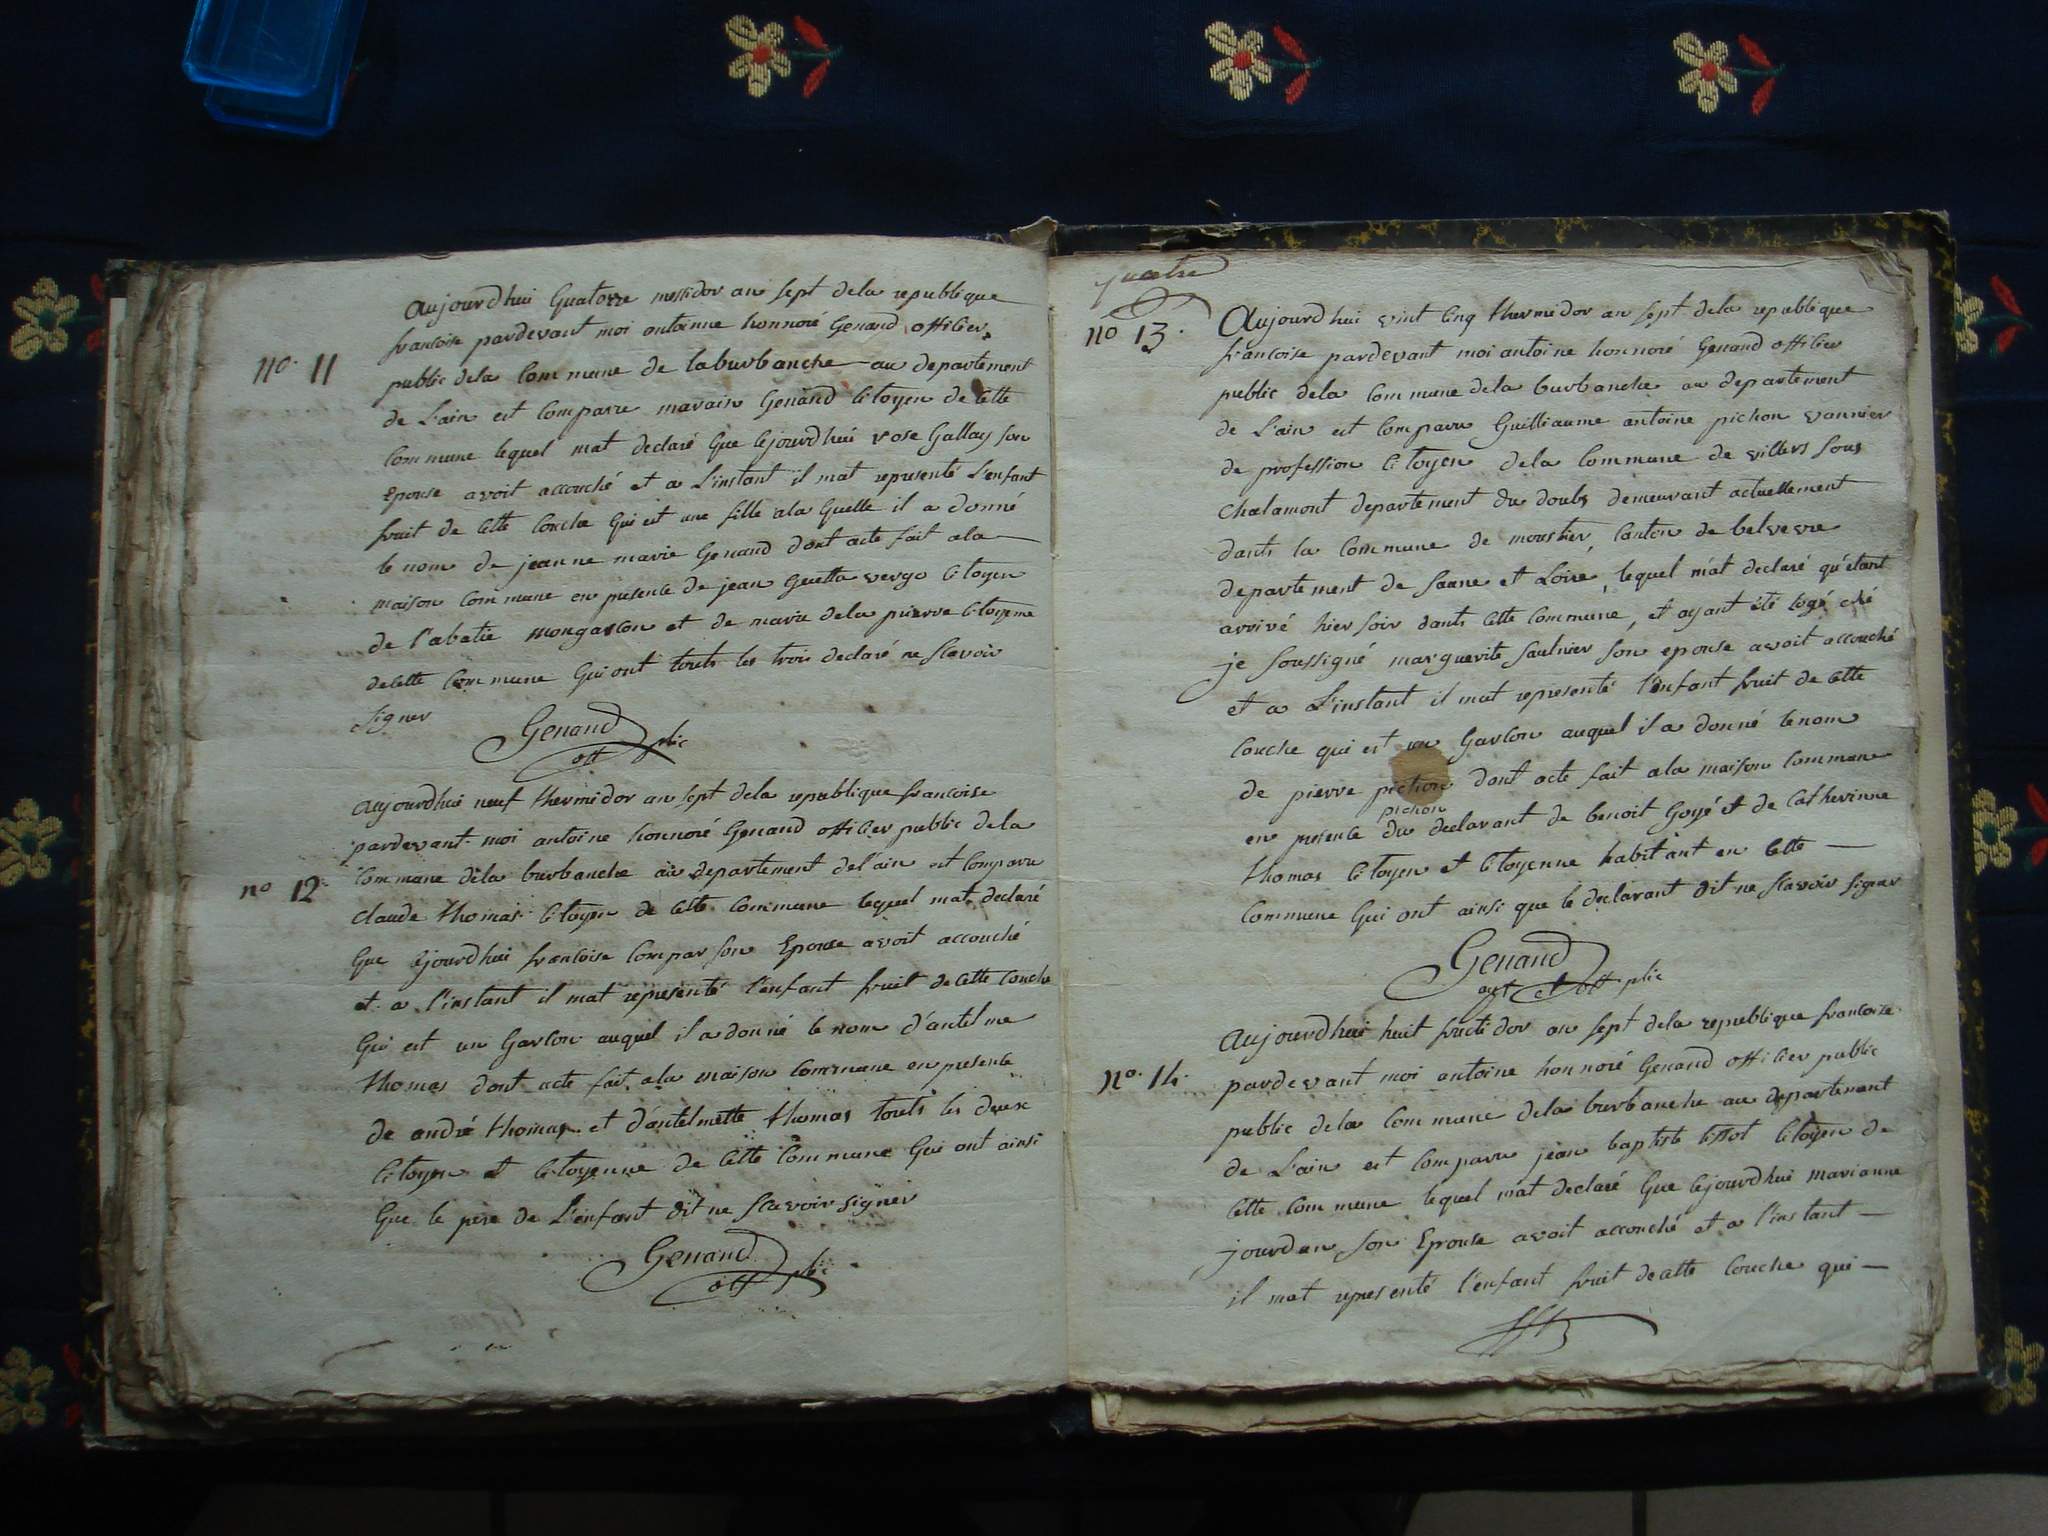 no. 11
aujourdhui Quatorze messidor an sept dela republique
francoise pardevant moi antoinne honnoré Genand officier
public dela Commune de laburbanche au departement
de L'ain est Comparu Genand Citoyen de Cette
Commune lequel mat declaré Que Cejourdhui rose Gallay son
Epouse avoit accouché et a L'instant il mat representé L'enfant
fruit de Cette Couche Qui est une fille ala Quelle il a donné
le nom de jeanne marie Genand dont acte fait ala
maison Commune en presence de jean Citoyen
de l'abatie mongascon et de marie dela pierre Citoyenne
decette Commune Qui ont touts les trois declaré ne Scavoir
Signer
Genand
off plic
no 12
aujourdhui neuf thermidor an sept dela republique francoise
pardevant moi antoine honnoré Genand officier public dela
Commune dela burbanche au departement del'ain est Comparu
claude thomas Citoyen de Cette Commune lequel mat declaré
Que Cejourdhui francoise Compar son Epouse avoit accouché
et a l'instant il mat representé l'enfant fruit de Cette Couche
Qui est un Garcon auquel il a donné le nom d'antelme
thomas dont acte fait ala maison Commune en presence
de andré thomas et d'antelmette thomas touts les deux
Citoyen et Citoyenne de Cette Commune Qui ont ainsi
Que le pere de L'enfant dit ne Scavoir signer
Genand
off plic
quatre
no 13.
Aujourdhui vint Cinq thermidor an sept dela republique
francoise pardevant moi antoine honnoré Genand officier
public dela Commune dela burbanche au departement
de L'ain est Comparu Guilliaume antoine pichon vannier
de profession Citoyen dela Commune de villers sous
Chalamont departement du doubs demeurant actuellement
dants la Commune de moustier, Canton de belvevre
departement de Saane et Loire, lequel m'at declaré qu'étant
arrivé hier soir dants Cette Commune, et ayant été logé ché
je soussigné marguerite Saulnier son epouse avoit accouché
et a L'instant il mat representé l'enfant fruit de Cette
Couche qui est un Garcon auquel il a donné le nom
de pierre pichon dont acte fait ala maison Commune
pichon
en presence du declarant de benoit Goyé et de Catherinne
thomas Citoyen et Citoyenne habitant en Cette
Commune Qui ont ainsi que le declarant dit ne Scavoir signer
Genand
agt et off plic
no. 14.
aujourdhui huit fructidor an sept dela republique francoise
pardevant moi antoine honnoré Genand officier public
public dela Commune dela burbanche au departement
de L'ain est Comparu jean baptiste tissot Citoyen de
Cette Commune lequel mat declaré Que Cejourdhui marianne
jourdan son Epouse avoit accouché et a l'instant
il mat representé l'enfant fruit decette Couche qui